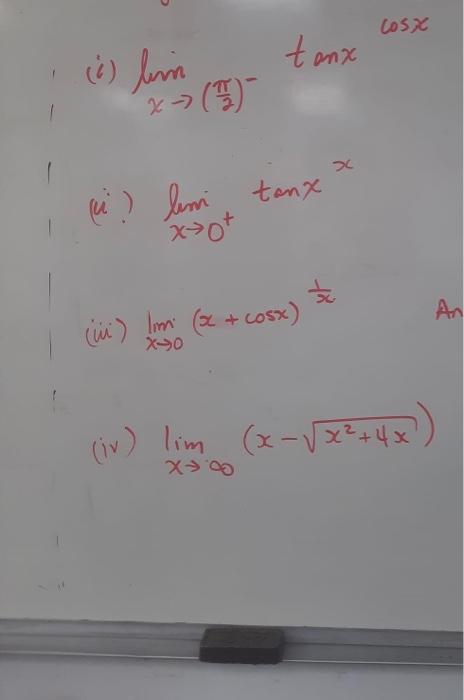 (i) lim x→(π/2)⁻ tanx^cosx
(ii) lim x→0⁺ tanx^x
(iii) lim x→0 (x + cosx)^1/x An
(iv) lim x→∞ (x − √x²+4x)